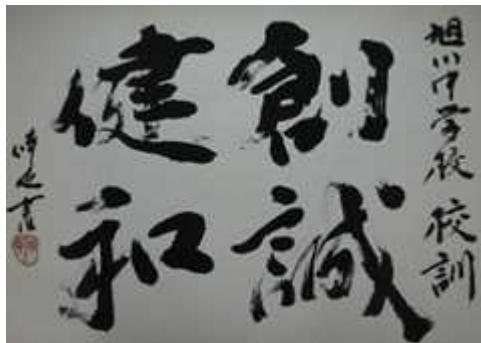 旭川中学校 校訓
創誠
健和
書